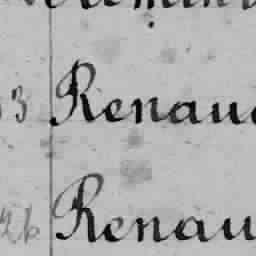 3 Renau
26 Renau